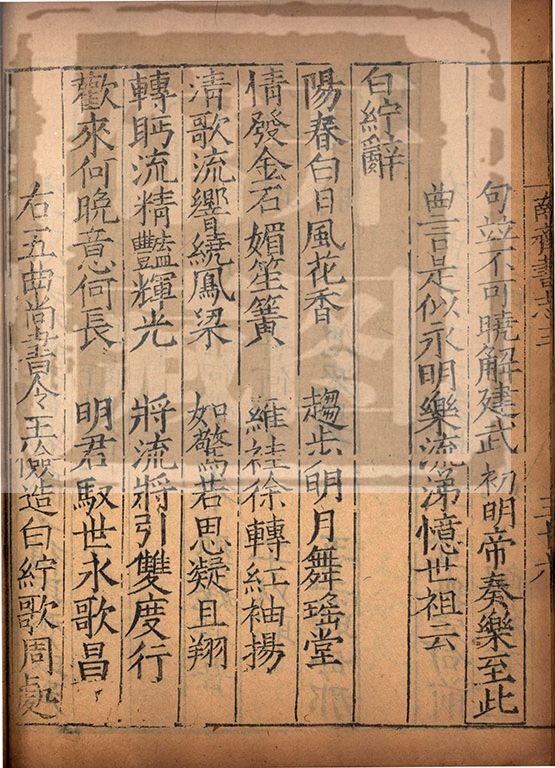 南齊書志三
句竝不可曉解建武初明帝奏樂至此
曲言是似永明樂流涕憶世祖云
白紵辭
陽春白日風花香　趨步明月舞瑤堂
情發金石媚笙簧　羅袿徐轉紅袖揚
清歌流響繞鳳梁　如驚若思凝且翔
轉眄流精豔輝光　將流將引雙度行
歡來何晚意何長　明君馭世永歌昌
右五曲尚書令王儉造白紵歌周處